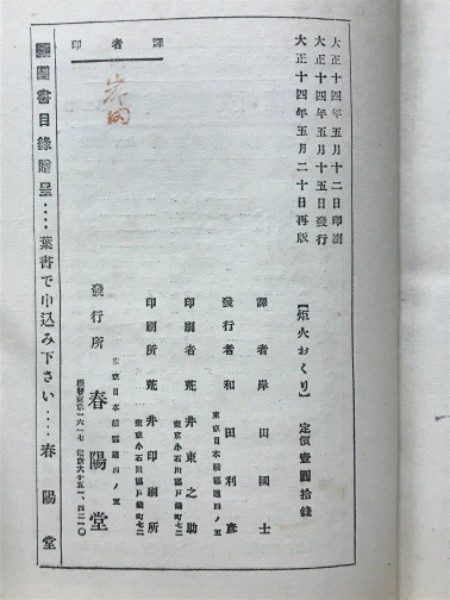 大正十四年五月十二日印刷
大正十四年五月十五日發行
大正十四年五月二十日再版
【炬火おくり】 定價壹圓拾錢
譯者 岸田國士
東京日本橋區通四ノ五
發行者 和田利彦
東京小石川區戸崎町七二
印刷者 荒井東之助
東京小石川區戸崎町七二
印刷所 荒井印刷所
東京日本橋區通四ノ五
發行所 春陽堂
振替東京一六一七
譯者印
圖書目錄贈呈‥‥葉書で申込み下さい‥‥春陽堂